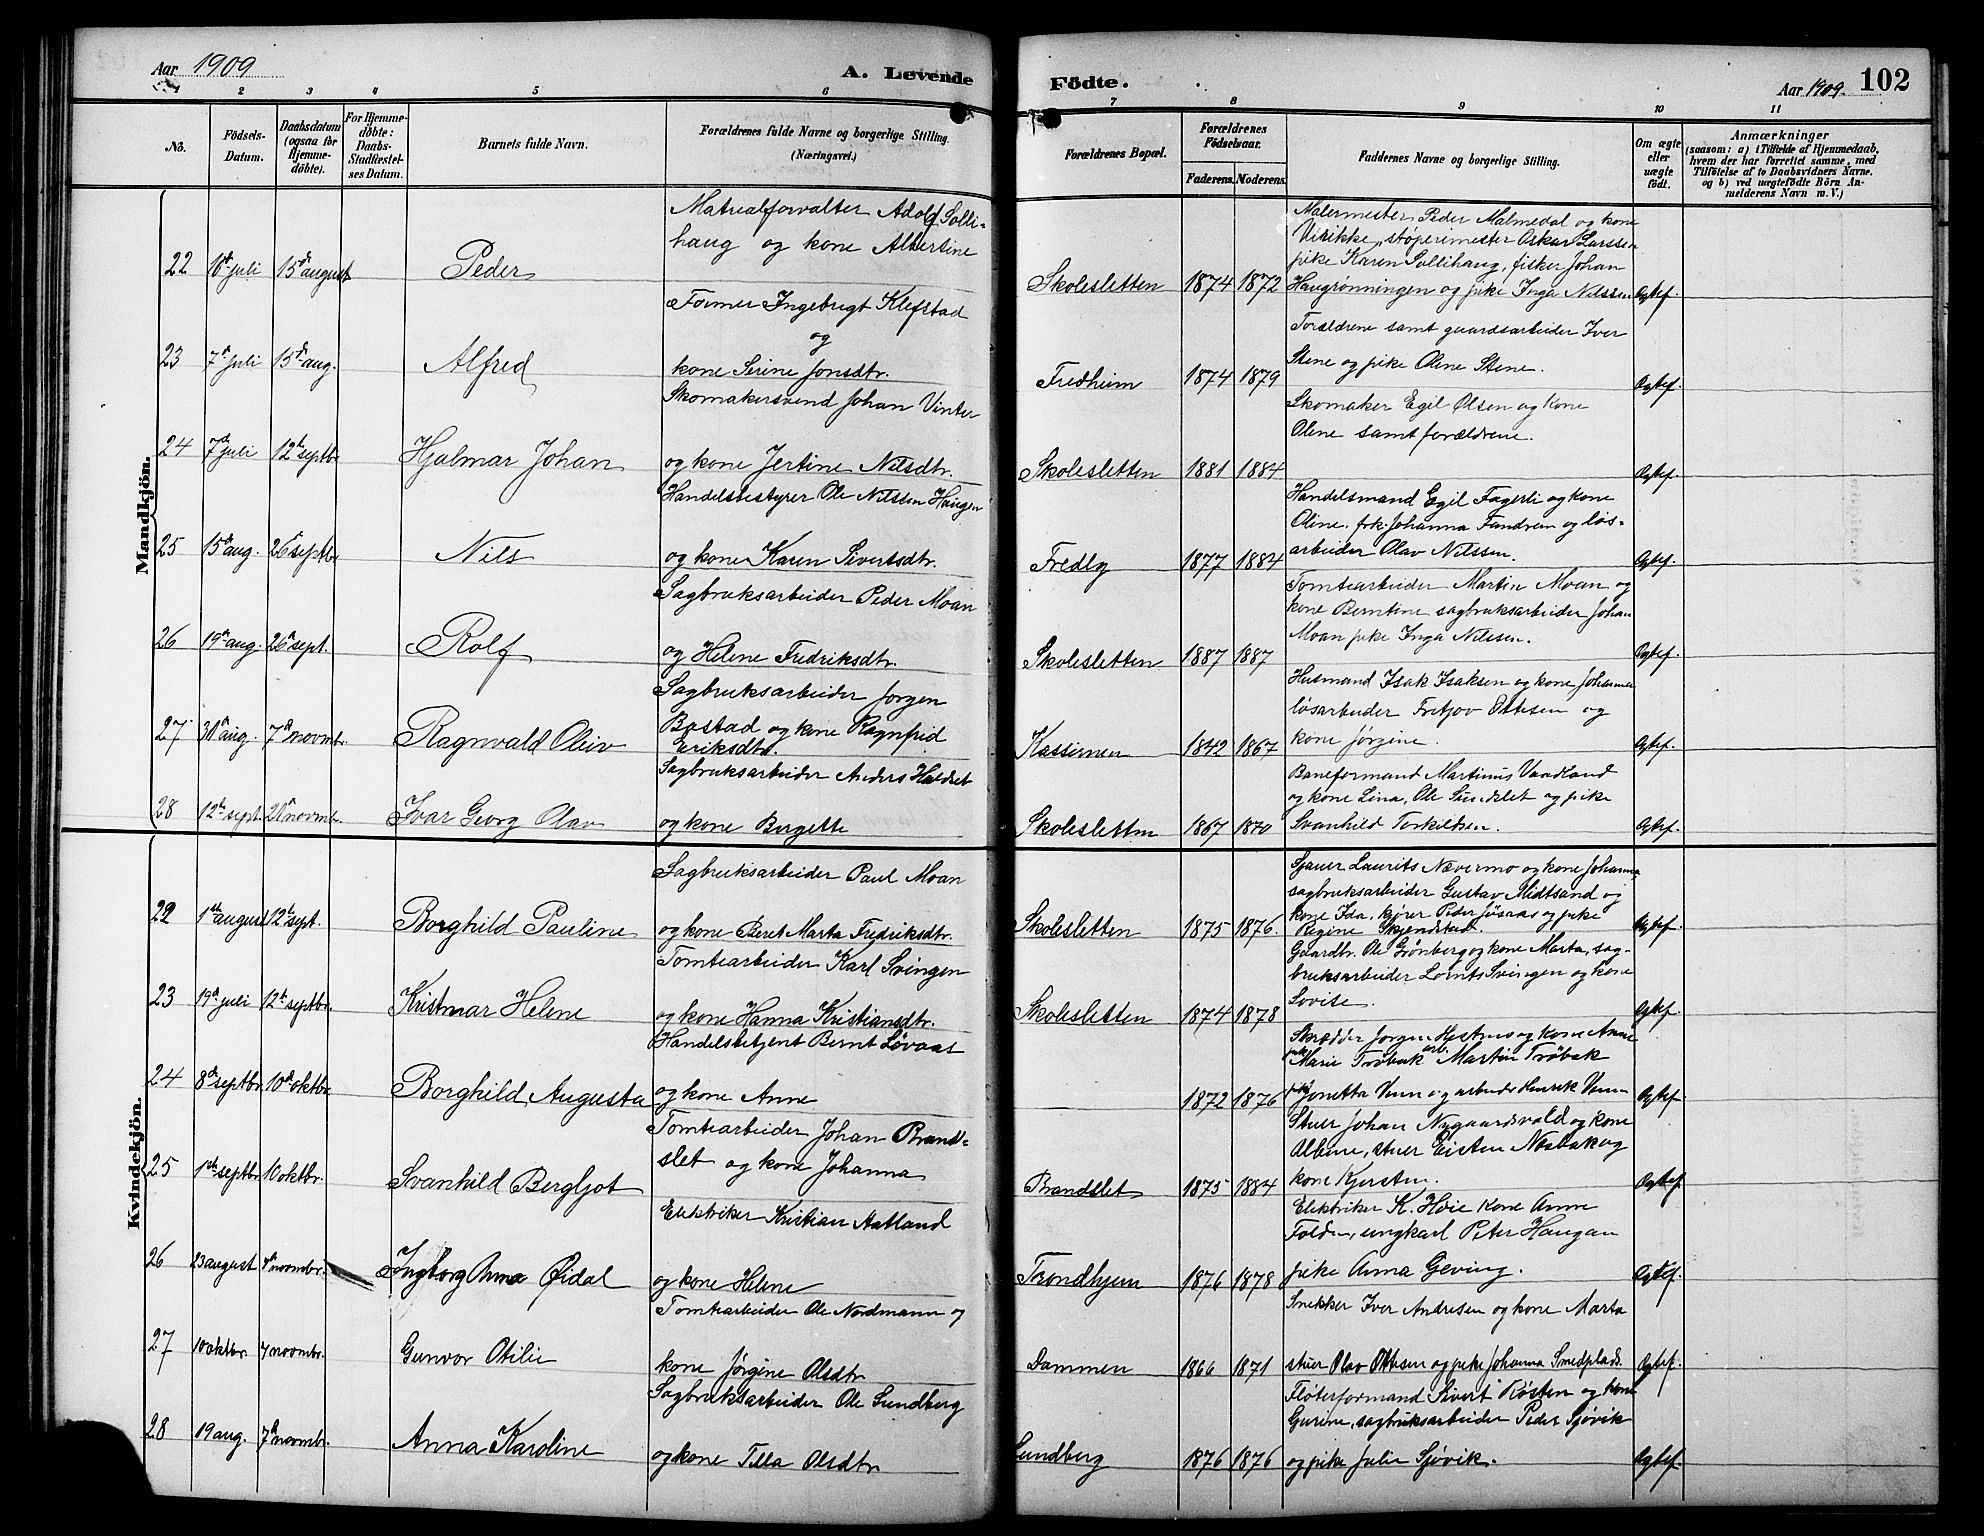 Aar 1909
A. Levende
Födte.
Aar 1909.
102
1 2 3 4 5 6 7 8 9 10 11
No.
Födsels-Datum.
Daabsdatum (ogsaa for Hjemmedöbte).
For Hjemmedöbte: Daabs-Stadfæstelses Datum.
Barnets fulde Navn.
Forældrenes fulde Navne og borgerlige Stilling. (Næringsvei.)
Forældrenes Bopæl.
Forældrenes Födselsaar.
Faderens. Moderens.
Faddernes Navne og borgerlige Stilling.
Om ægte eller uægte födt.
Anmærkninger
(saasom: a) i Tilfælde af Hjemmedaab,
hvem der har forrettet samme, med
Tilföielse af to Daabsvidners Navne.
og b) ved uægtefödte Börn Anmelderens Navn m. V.)
Mandkjön.
22 juli 15d august Peder
Matrealforvalter Adolf Solli-
haug og kone Albertine
Skolesletten 1874 1872
Malermester Peder Malmedal og kone
støperimester Oskar Larssen
pike Karen Sollihaug, fisker Johan
Haugrønningen og pike Inga Nilssen
Ægtef.
23 7d juli 15d aug. Alfred
Former Ingebrigt Klefstad
og
kone Serine Jonsdtr.
Fredheim 1874 1879
Forældrene samt gaardsarbeider Iver
Stene og pike Oline Stene.
Ægtef.
24 7d juli 12te septbr Hjalmar Johan
Skomakersvend Johan Vinter
og kone Jertine Nilsdtr.
Skolesletten 1881 1884
Skomaker Egil Olsen og kone
Oline samt forældrene.
Ægtef.
25 15d aug. 26d septbr Nils
Handelsbestyrer Ole Nilssen Haugen
og kone Karen Sivertsdtr.
Fredly 1877 1884
Handelsmand Egil Fagerli og kone
Oline, frk. Johanna Fandrem og løs-
arbeider Olav Nilssen.
Ægtef.
26 19d aug. 26d sept. Rolf
Sagbruksarbeider Peder Moan
og Helene Fredriksdtr.
Skolesletten 1887 1887
Tomtearbeider Martin Moan og
kone Berntine sagbruksarbeider Johan
Moan pike Inga Nilssen.
Ægtef.
27 31d aug. 7d novmbr. Ragnvald Oliv
Sagbruksarbeider Jørgen
Bostad og kone Ragnfrid
Eriksdtr.
Kassernen 1842 1867
Husmand Isak Isaksen og kone Johanna
løsarbeider Fritjov Ottesen og
kone Jørgine.
Ægtef.
28 12te sept. 21d novmbr. Ivar Georg Olav
Sagbruksarbeider Anders Haldset
og kone Bergette
Skolesletten 1867 1870
Baneformand Martinus Vaadland
og kone Lina, Ole Sundslet og pike
Svanhild Torkildsen.
Ægtef.
Kvindekjön.
22 1ste august 12te sept. Borghild Pauline
Sagbruksarbeider Paul Moan
og kone Beret Marta Fredriksdtr.
Skolesletten 1875 1876.
Sjauer Laurits Nævermo og kone Johanna
sagbruksarbeider Gustav Midtsand og
kone Ida, kjører Peder Jøsaas og pike
Regine Skjenstad.
Ægtef.
23 19d juli 12te septbr. Kristmar Helene
Tomtearbeider Karl Svingen
og kone Hanna Kristiansdtr.
Skolesletten 1874 1878
Gaardbr. Ole Grønberg og kone Marta, sag-
bruksarbeider Lornts Svingen og kone
Lovise.
Ægtef.
24 8d septbr. 10d oktbr. Borghild Augusta
Handelsbetjent Bernt Løvaas
og kone Anne
1872 1876
Skrædder Jørgen og kone Anne
pike Marie Trøbak arb. Martin Trøbak
pike Jonetta Venn og arbeider Henrik Venn
Ægtef.
25 1ste septbr. 10 oktbr. Svanhild Bergljot
Tomtearbeider Johan Brand-
slet og kone Johanna
Brandslet 1875 1884
Stuer Johan Nygaardsvold og kone
Albine, stuer Eisten Nesbak og
kone Kjersten.
Ægtef.
26 23 august 7d novmbr. Ingborg Anna Øidal
Elektriker Kristian Aatland
og kone Helene
Trondhjem 1876 1878
Elektriker K. Høie kone Anne
Folden, ungkarl Peter Haugan
pike Anna Geving.
Ægtef.
27 10 oktbr 7 novmbr. Gunvor Otilie
Tomtearbeider Ole Nordmann og
kone Jørgine Olsdtr
Dammen 1866 1871
Snekker Iver Andresen og kone Marta
stuer Olav Ottesen og pike Johanna Smedplads.
Ægtef.
28 19 aug. 7d novmbr. Anna Karoline
Sagbruksarbeider Ole Sundberg
og kone Tilla Olsdtr.
Sundberg 1876 1876
Fløterformand Sivert Røsten og kone
Gurine, sagbruksarbeider Peder Sjøvik
og pike Julie Sjøvik.
Ægtef.